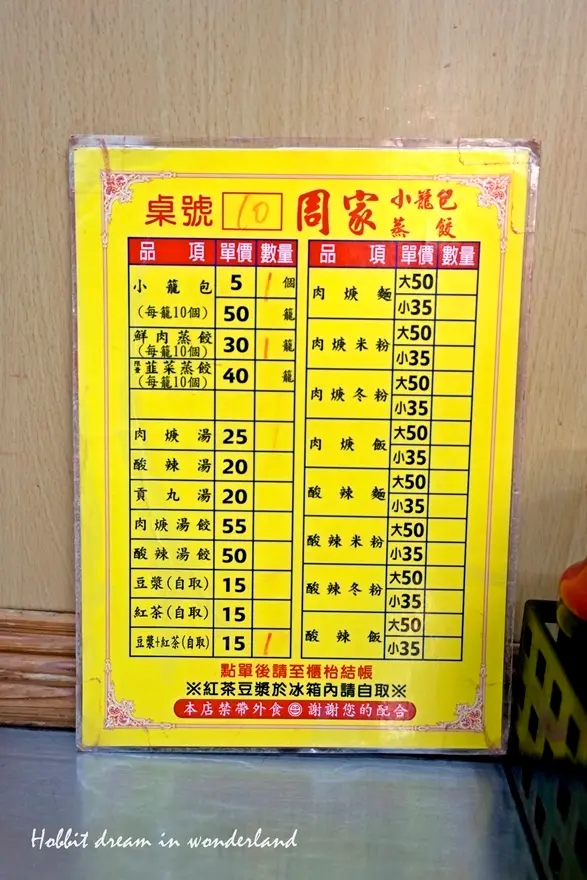 桌號 10 周家 小籠包 蒸餃
品項 單價 數量
小籠包 5 1 個
(每籠10個) 50 籠
鮮肉蒸餃 (每籠10個) 30 1 籠
限量 韮菜蒸餃 (每籠10個) 40 籠
肉焿湯 25
酸辣湯 20
貢丸湯 20
肉焿湯餃 55
酸辣湯餃 50
豆漿(自取) 15
紅茶(自取) 15
豆漿+紅茶(自取) 15 1
品項 單價 數量
肉焿麵 大50
小35
肉焿米粉 大50
小35
肉焿冬粉 大50
小35
肉焿飯 大50
小35
酸辣麵 大50
小35
酸辣米粉 大50
小35
酸辣冬粉 大50
小35
酸辣飯 大50
小35
點單後請至櫃枱結帳
※紅茶豆漿於冰箱內請自取※
本店禁帶外食 謝謝您的配合
Hobbit dream in wonderland